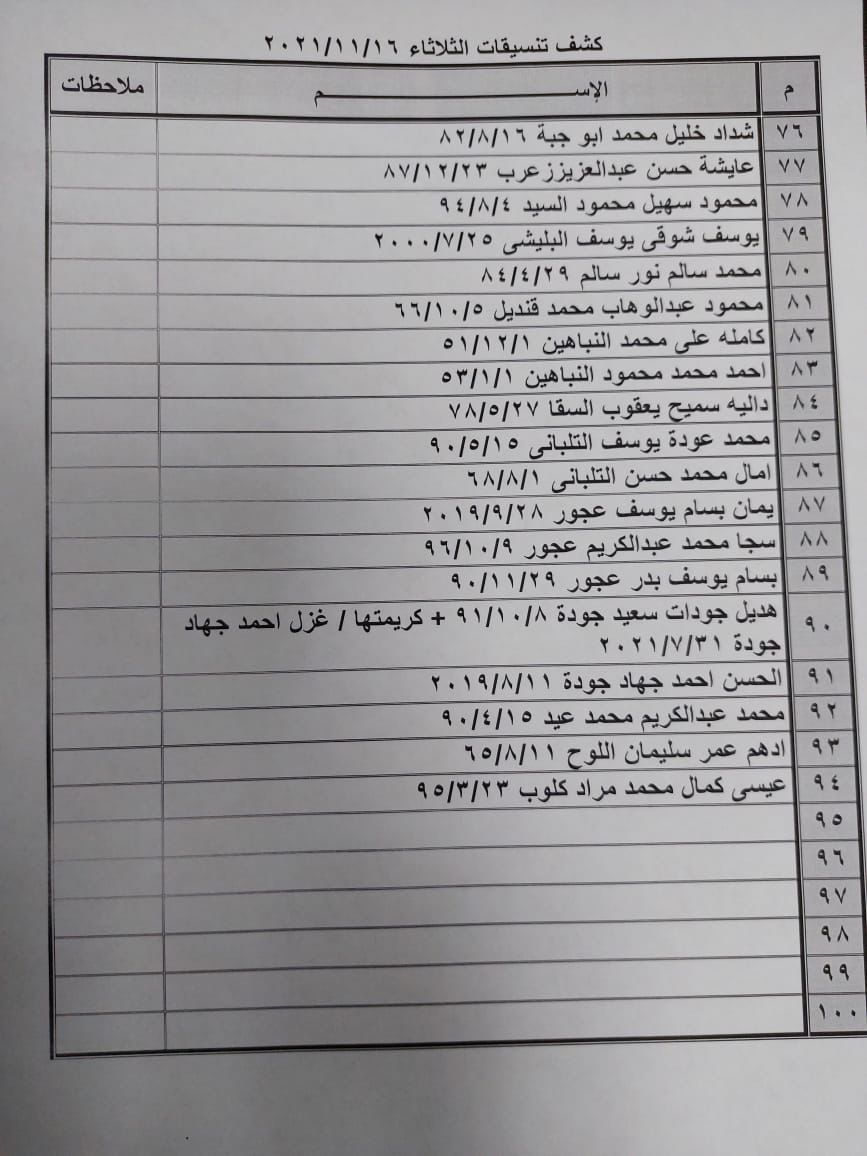 كشف تنسيقات الثلاثاء ٢٠٢١/١١/١٦
م الإســـــــــــم ملاحظات
٧٦ شداد خليل محمد ابو جبة ٨٢/٨/١٦
٧٧ عايشة حسن عبدالعزيززعرب ٨٧/١٢/٢٣
٧٨ محمود سهيل محمود السيد ٩٤/٨/٤
٧٩ يوسف شوقى يوسف البليشى ٢٠٠٠/٧/٢٥
٨٠ محمد سالم نور سالم ٨٤/٤/٢٩
٨١ محمود عبدالوهاب محمد قنديل ٦٦/١٠/٥
٨٢ كامله على محمد النباهين ٥١/١٢/١
٨٣ احمد محمد محمود النباهين ٥٣/١/١
٨٤ داليه سميح يعقوب السقا ٧٨/٥/٢٧
٨٥ محمد عودة يوسف التلبانى ٩٠/٥/١٥
٨٦ امال محمد حسن التلبانى ٦٨/٨/١
٨٧ يمان بسام يوسف عجور ٢٠١٩/٩/٢٨
٨٨ سجا محمد عبدالكريم عجور ٩٦/١٠/٩
٨٩ بسام يوسف بدر عجور ٩٠/١١/٢٩
٩٠ هديل جودات سعيد جودة ٩١/١٠/٨ + كريمتها / غزل احمد جهاد
جودة ٢٠٢١/٧/٣١
٩١ الحسن احمد جهاد جودة ٢٠١٩/٨/١١
٩٢ محمد عبدالكريم محمد عيد ٩٠/٤/١٥
٩٣ ادهم عمر سليمان اللوح ٦٥/٨/١١
٩٤ عيسى كمال محمد مراد كلوب ٩٥/٣/٢٣
٩٥
٩٦
٩٧
٩٨
٩٩
١٠٠